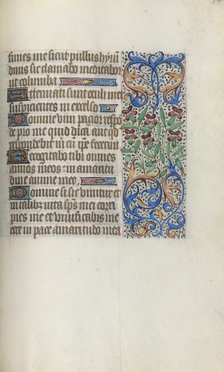 runes me sicut pullus hyru
dinis sic clamabo meditabor
ut columba
Attenuati sunt oculi mei
suspicientes in excelso
Domine vim pacior respo
de pro me quid dica aut
respondebit m cum ipse fece
Recogitabo tibi omnes
annos meos: in amaritu
dine anime mee
Domine si sic vivitur et
in talib; vita sps mei corri
pies me et vivificabis me
ecce in pace amaritudo mea